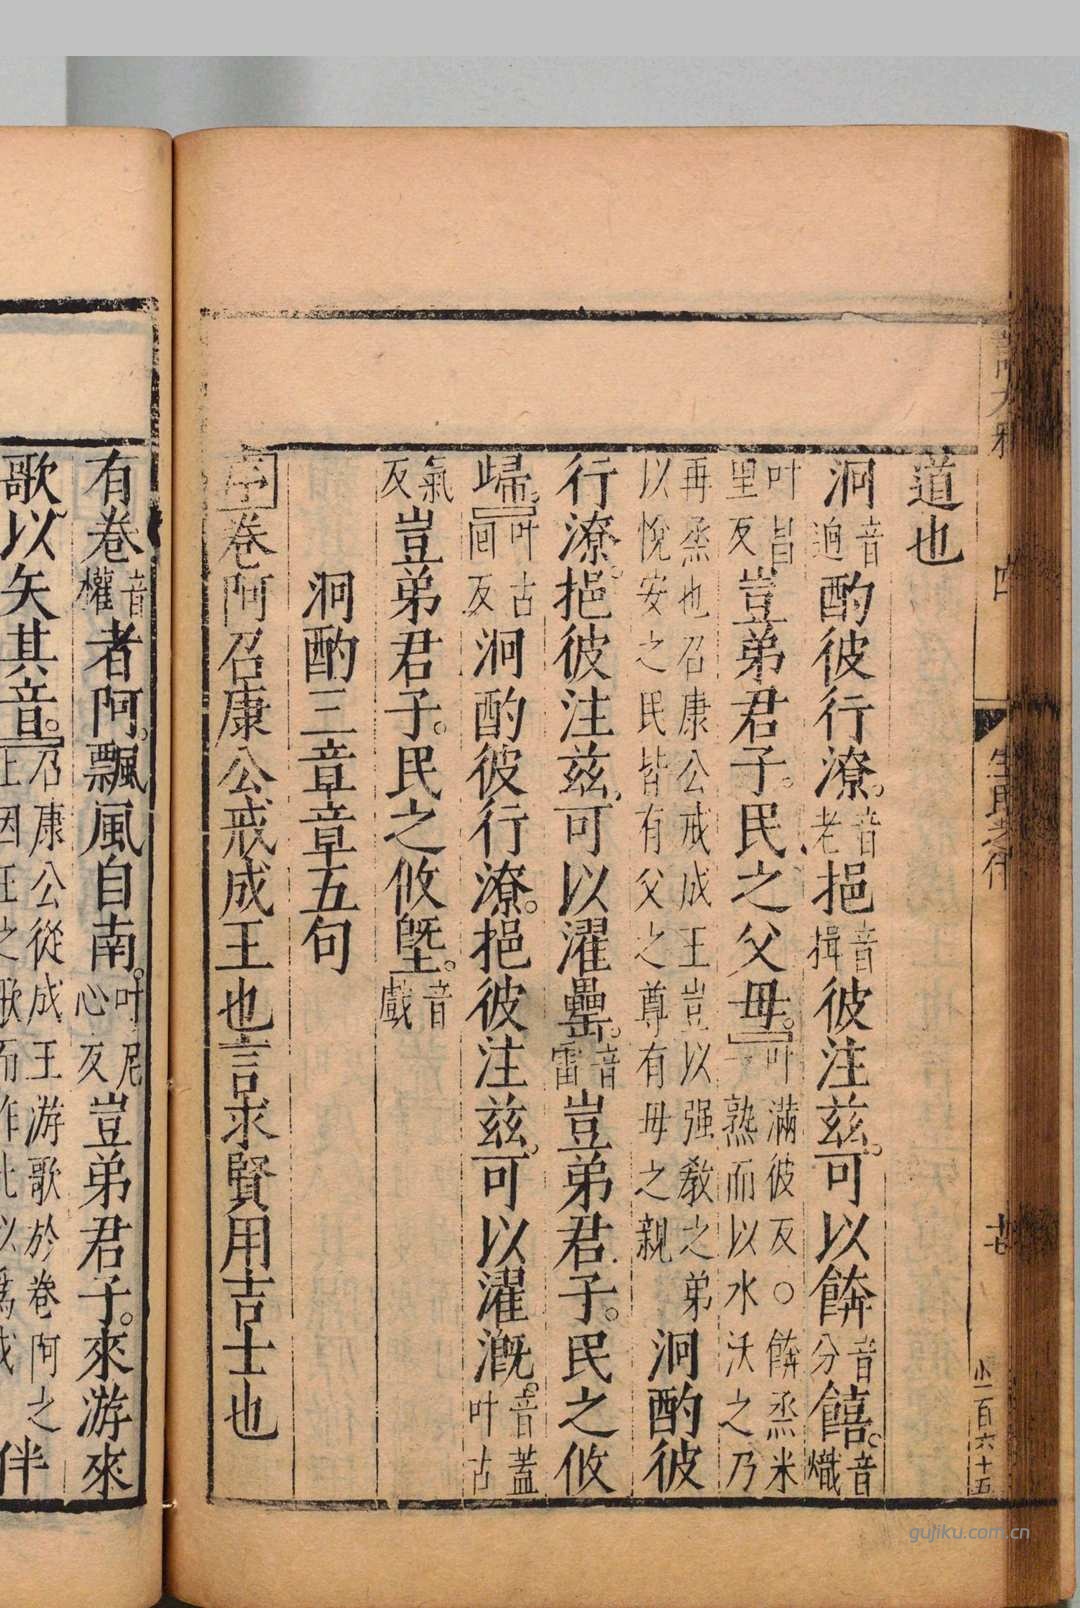 道也
泂音迥酌彼行潦。音老挹音揖彼注兹。可以餴音分饎。音熾
叶昌里反豈弟君子。民之父母。叶滿彼反○餴烝米熟而以水沃之乃
再烝也召康公戒成王豈以强敎之弟以悅安之民皆有父之尊有母之親泂酌彼
行潦。挹彼注兹。可以濯罍。音雷豈弟君子。民之攸
歸。叶古回反泂酌彼行潦。挹彼注兹。可以濯漑。音蓋叶古
氣反豈弟君子。民之攸塈。音戲
泂酌三章章五句
序卷阿召康公戒成王也言求賢用吉士也
詩大雅
四
生民之什
小一百六十五
有卷音權者阿。飄風自南。叶尼心反豈弟君子。來游來
歌以矢其音。召康公從成王游歌於卷阿之上因王之歌而作此以爲戒伴
gujiku.com.cn